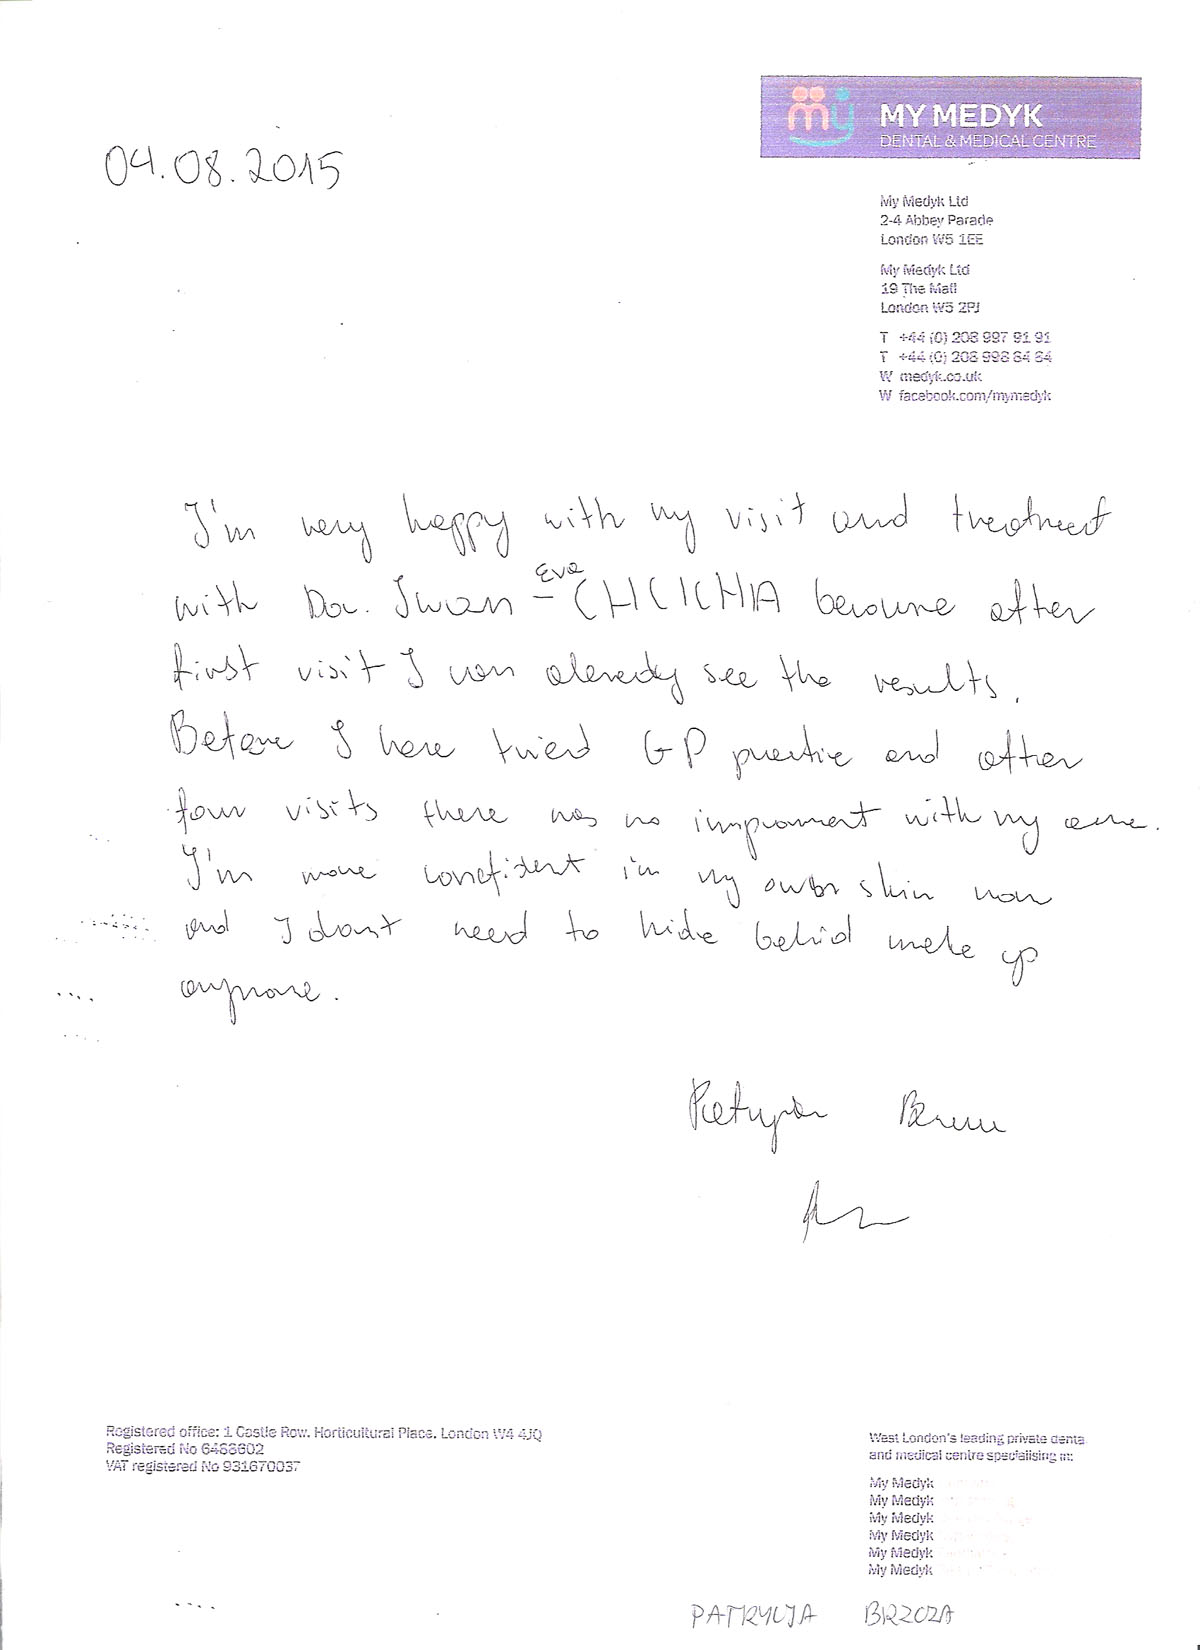 my MY MEDYK
DENTAL & MEDICAL CENTRE
04.08.2015
My Medyk Ltd
2-4 Abbey Parade
London W5 1EE
My Medyk Ltd
19 The Mall
London W5 2PJ
T +44 (0) 208 997 91 91
T +44 (0) 208 998 84 84
W medyk.co.uk
W facebook.com/mymedyk
I'm very happy with my visit and treatment
Eva
with Doc. Iwan – CHCICHIA becaune after
first visit I can already see the results.
Before I have tried GP practice and after
four visits there was no improment with my acne.
I'm more confident in my own skin now
and I don't need to hide behid make up
anymore.
Patrycja
Registered office: 1 Castle Row, Horticultural Place, London W4 4JQ
Registered No 6468602
VAT registered No 931670037
West London's leading private denta
and medical centre specialising in:
My Medyk
My Medyk
My Medyk
My Medyk
My Medyk
My Medyk
PATRYCJA BRZOZA